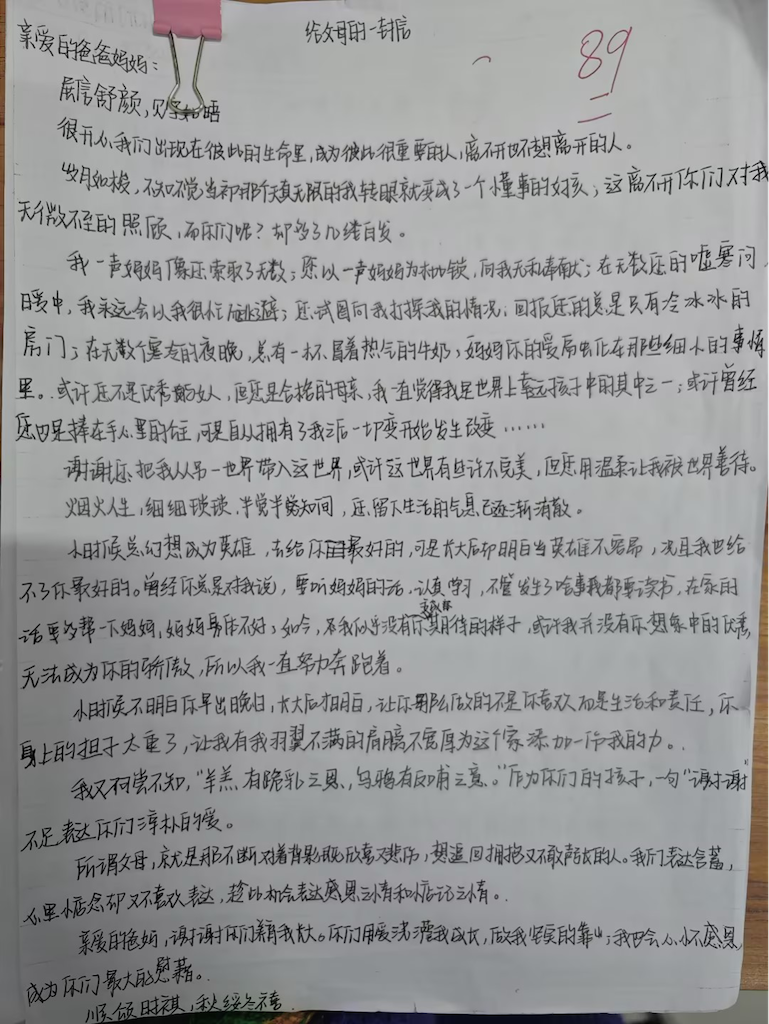 给父母的一封信
89
亲爱的爸爸妈妈:
展信舒颜,见字如晤
很开心我们出现在彼此的生命里,成为彼此很重要的人,离不开也不想离开的人。
岁月如梭,不知不觉当初那个天真无限的我转眼就变成了一个懂事的女孩;这离不开你们对我
无微不至的照顾,而你们呢?却多了几缕白发。
我一声妈妈像您索取了无数;您以一声妈妈为枷锁,向我无私奉献;在无数您的嘘寒问
暖中,我永远会以我很忙而逃避;您试图向我打探我的情况,回报您的总是只有冷冰冰的
房门;在无数个寒冷的夜晚,总有一杯冒着热气的牛奶,妈妈你的爱局虫化在那些细小的事情
里。或许您不是优秀的女人,但您是合格的母亲,我一直觉得我是世界上幸运孩子中的其中之一;或许曾经
您也是捧在手心里的,可是自从拥有了我之后一切变开始发生改变……
谢谢您把我从另一世界带入这世界,或许这世界有些许不完美,但您用温柔让我被世界善待。
烟火人生,细细琐琐,半觉半知间,您留下生活的气息已逐渐消散。
小时候总幻想成为英雄,去给你最好的,可是长大后却明白当英雄不容易,况且我也给
不了你最好的。曾经你总是对我说,要听妈妈的话,认真学习,不管发生了啥事我都要读书,在家的
话要多帮一下妈妈,妈妈身体不好;如今,我似乎没有成为你期待的样子,或许我并没有你想象中的优秀,
无法成为你的骄傲,所以我一直努力奔跑着。
小时候不明白你早出晚归,长大后才明白,让你那么做的不是你喜欢而是生活和责任,你
身上的担子太重了,让我有我羽翼不满的肩膀不宽厚为这个家添加一份我的力。
我又何尝不知,“羊羔有跪乳之恩,乌鸦有反哺之意。”作为你们的孩子,一句“谢谢
不足表达你们淳朴的爱。
所谓父母,就是那不断对着背影既欣喜又悲伤,想追回拥抱又不敢声张的人。我们表达含蓄,
心里惦念却又不喜欢表达,趁此机会表达感恩之情和惦记之情。
亲爱的爸妈,谢谢你们养我长大。你们用爱浇灌我成长,做我坚实的靠山;我也会心怀感恩
成为你们最大的慰藉。
顺颂时祺,秋绥冬禧